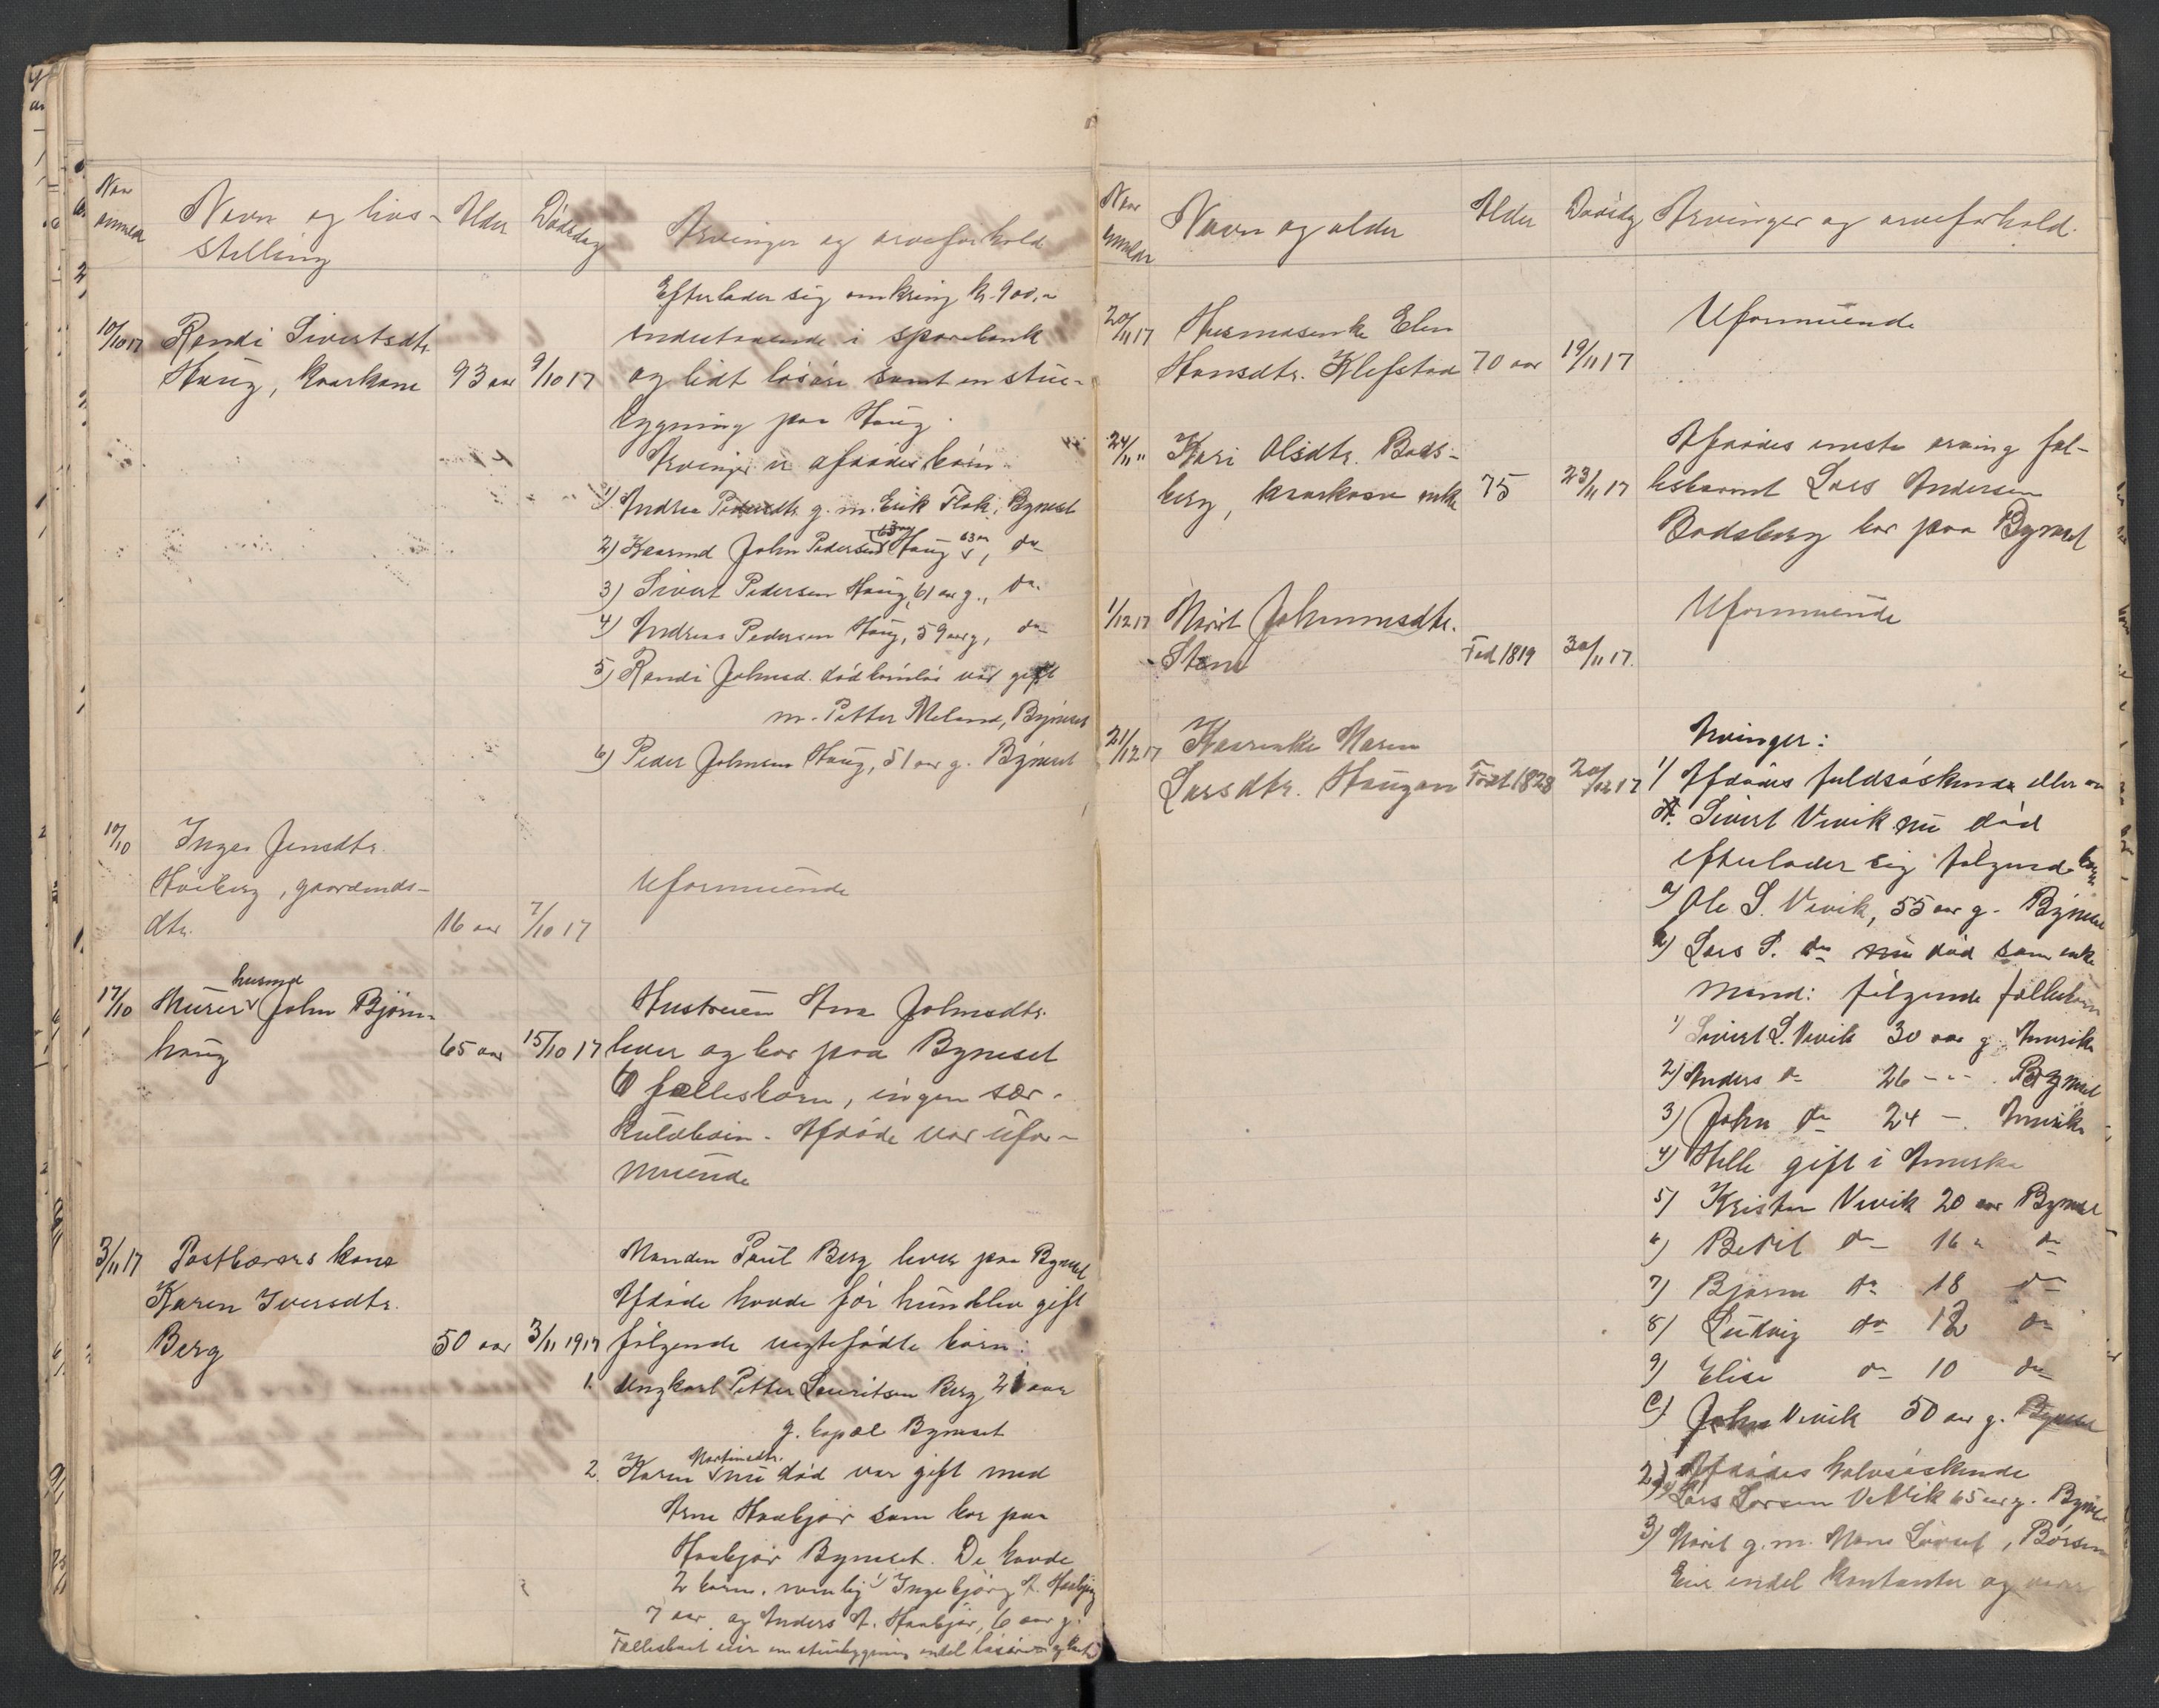 Naar
anmeldt
Navn og livs-
stilling
Alder
Dødsdag
Arvinger og arveforhold
Efterlader sig omkring kr. 900,-
10/10 17 Randi Sivertsdtr.
indestaaende i sparebank
Haug, kaarkone 93 aar 9/10 17 og lidt løsøre samt en stue-
bygning paa Haug.
Arvinger er afdødes børn
1) Andrea Pedersdtr. g. m. Erik Flak, Bynesset
2) Kaarmd John Pedersen Haug 63 aar, do
3) Sivert Pedersen Haug, 61 aar g., do.
4) Andreas Pedersen Haug, 59 aar g, do
5) Randi Johnsd. død barnløs var gift
m. Petter Meland, Bynesset
6) Peder Johnsen Haug, 51 aar g. Bynesset
10/10 Inga Jensdtr.
Høiberg, gaardmds-
dtr. 16 aar 7/10 17
Uformuende
husmd
17/10 Murer John Bjørn-
haug 65 aar 15/10 17
Hustruen Ana Johnsdtr.
lever og bor paa Bynesset
6 fællesbørn, ingen sær-
kuldbørn. Afdøde var ufor-
muende
3/11 17 Postbærers kone
Karen Iversdtr.
Berg 50 aar 3/11 1917
Manden Paul Berg lever paa Bynesset
Afdøde havde før hun blev gift
følgende uegtefødte børn:
1. Ungkarl Petter Lauritsen Berg 21 aar
g. bopæl Bynesset
2. Karen Martinsdtr. nu død var gift med
Arne Haabjør som bor paa
Haabjør Bynesset. De havde
2 børn, nemlig 1) Ingebjørg A. Haabjør
7 aar og Anders A. Haabjør, 6 aar g.
Fællesboet eier en stuebygning endel løsøre
Naar
anmeldt
Navn og alder
Alder
Dødsdag
Arvinger og arveforhold.
20/11 17 Husmdsenke Elen
Hansdtr. Klefstad 70 aar 19/11 17
Uformuende
24/11 " Kari Olsdtr. Bods-
berg, kaarkone enke 75 23/11 17
Afdødes eneste arving fæl-
lesbarnet Lars Andersen
Bodsberg bor paa Bynesset
1/12 17 Marit Johannsdtr.
Stene Fød 1819 30/11 17.
Uformuende
21/12 17 Kaarenke Maren
Larsdtr. Haugan Født 1828 20/12 17
Arvinger:
1) Afdødes fuldsøskende eller
A. Sivert Vevik nu død
efterlader sig følgende børn
a) Ole S. Vevik, 55 aar g. Bynesset
b) Lars S. do nu død som enke
mand: følgende fællesbørn
1) Sivert L. Vevik 30 aar g. Amerika
2) Anders do 26 - " - Bynesset
3) John do 24 - . Amerika
4) Helli gift i Amerika
5) Kristen Vevik 20 aar Bynesset
6) Beret do 16 " do
7) Bjørn do 18 do
8) Ludvig do 12 do
9) Elise do 10 do
C). John Vevik 50 aar g. Bynesset
2) Afdødes halvsøskende
Lars Larsen Vevik 65 aar g. Bynesset
3) Marit g. m. Hans Lørset, Børsen
Eier endel kontanter og